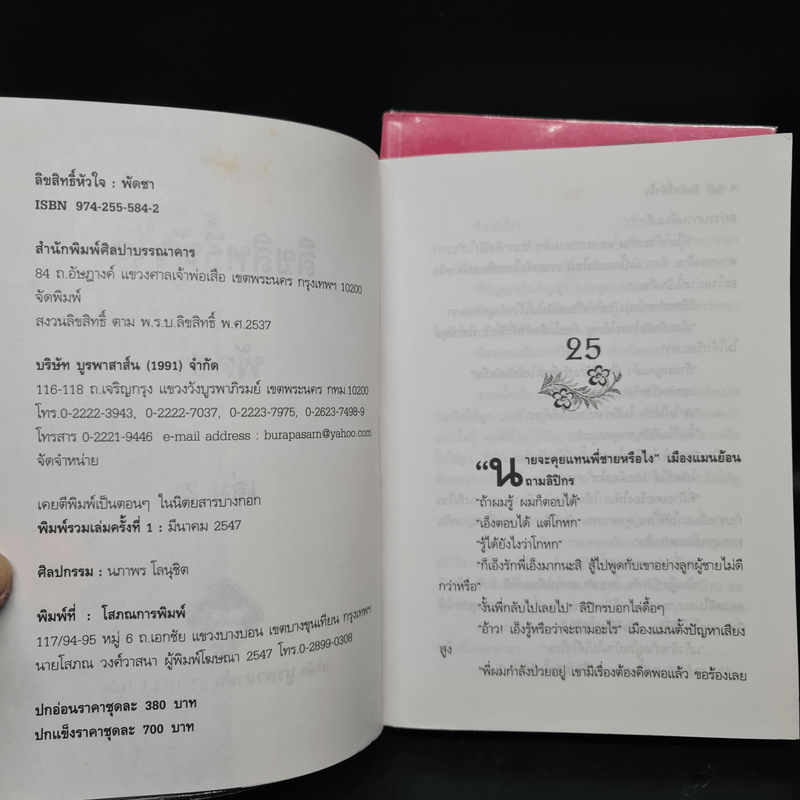 ลิขสิทธิ์หัวใจ : พัดชา
ISBN 974-255-584-2
สำนักพิมพ์ศิลปาบรรณาคาร
84 ถ.อัษฎางค์ แขวงศาลเจ้าพ่อเสือ เขตพระนคร กรุงเทพฯ 10200
จัดพิมพ์
สงวนลิขสิทธิ์ ตาม พ.ร.บ.ลิขสิทธิ์ พ.ศ.2537
บริษัท บูรพาสาส์น (1991) จำกัด
116-118 ถ.เจริญกรุง แขวงวังบูรพาภิรมย์ เขตพระนคร กทม.10200
โทร.0-2222-3943, 0-2222-7037, 0-2223-7975, 0-2623-7498-9
โทรสาร 0-2221-9446 e-mail address : burapasarn@yahoo.com
จัดจำหน่าย
เคยตีพิมพ์เป็นตอนๆ ในนิตยสารบางกอก
พิมพ์รวมเล่มครั้งที่ 1 : มีนาคม 2547
ศิลปกรรม : นภาพร โลนุชิต
พิมพ์ที่ : โสภณการพิมพ์
117/94-95 หมู่ 6 ถ.เอกชัย แขวงบางบอน เขตบางขุนเทียน กรุงเทพฯ
นายโสภณ วงศ์วาสนา ผู้พิมพ์โฆษณา 2547 โทร.0-2899-0308
ปกอ่อนราคาชุดละ 380 บาท
ปกแข็งราคาชุดละ 700 บาท
25
“นายจะคุยแทนพี่ชายหรือไง” เมืองแมนย้อน
ถามลิปิกร
“ถ้าผมรู้ ผมก็ตอบได้”
“เอ็งตอบได้ แต่โกหก”
“รู้ได้ยังไงว่าโกหก”
“ก็เอ็งรักพี่เอ็งมากนะสิ สู้ไปพูดกับเขาอย่างลูกผู้ชายไม่ดี
กว่าหรือ”
“งั้นพี่กลับไปเลยไป” ลิปิกรบอกไล่ดื้อๆ
“อ้าว! เอ็งรู้หรือว่าจะถามอะไร” เมืองแมนตั้งปัญหาเสียง
สูง
“พี่ผมกำลังป่วยอยู่ เขามีเรื่องต้องคิดพอแล้ว ขอร้องเลย